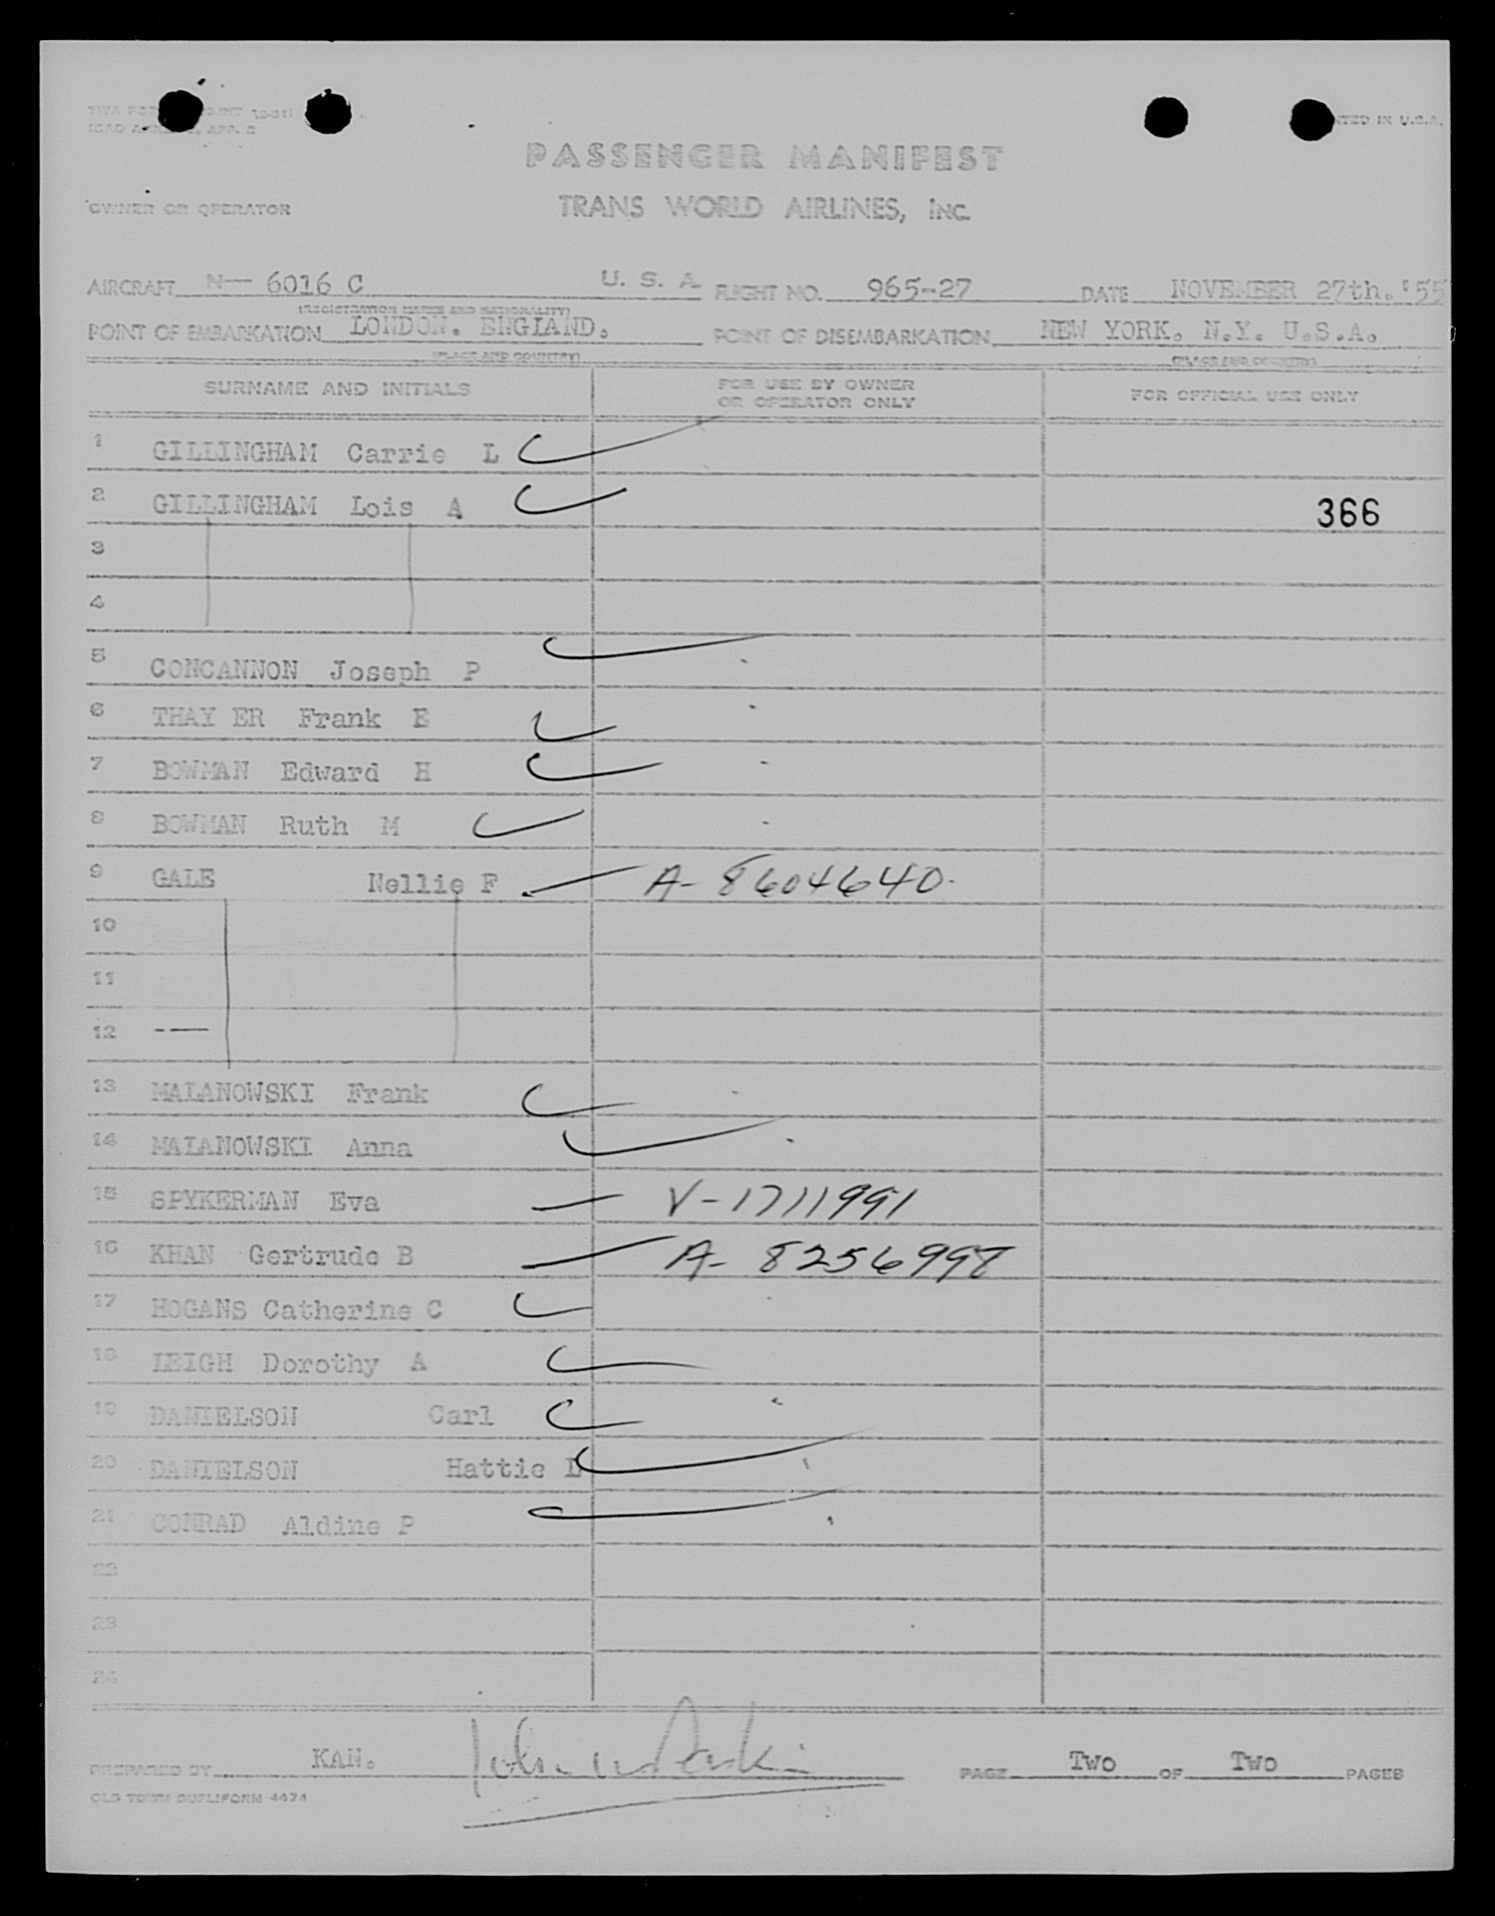 PRINTED IN U.S.A.
PASSENGER MANIFEST
OWNER OR OPERATOR TRANS WORLD AIRLINES, INC.
AIRCRAFT N— 6016 C U. S. A. FLIGHT NO. 965-27 DATE NOVEMBER 27th. '55
(REGISTRATION MARKS AND NATIONALITY)
POINT OF EMBARKATION LONDON. ENGLAND. POINT OF DISEMBARKATION NEW YORK. N.Y. U.S.A.
(PLACE AND COUNTRY) (PLACE AND COUNTRY)
SURNAME AND INITIALS FOR USE BY OWNER OR OPERATOR ONLY FOR OFFICIAL USE ONLY
1 GILLINGHAM Carrie L
2 GILLINGHAM Lois A 366
3
4
5 CONCANNON Joseph P
6 THAY ER Frank E
7 BOWMAN Edward H
8 BOWMAN Ruth M
9 GALE Nellie F A- 8604640.
10
11
12 ---
13 MALANOWSKI Frank
14 MALANOWSKI Anna
15 SPYKERMAN Eva V-1711991
16 KHAN Gertrude B A- 8256998
17 HOGANS Catherine C
18 LEIGH Dorothy A
19 DANIELSON Carl
20 DANIELSON Hattie L
21 CONRAD Aldine P
22
23
24
PREPARED BY KAN. PAGE Two OF Two PAGES
OLD TOWN DUPLIFORM 4474